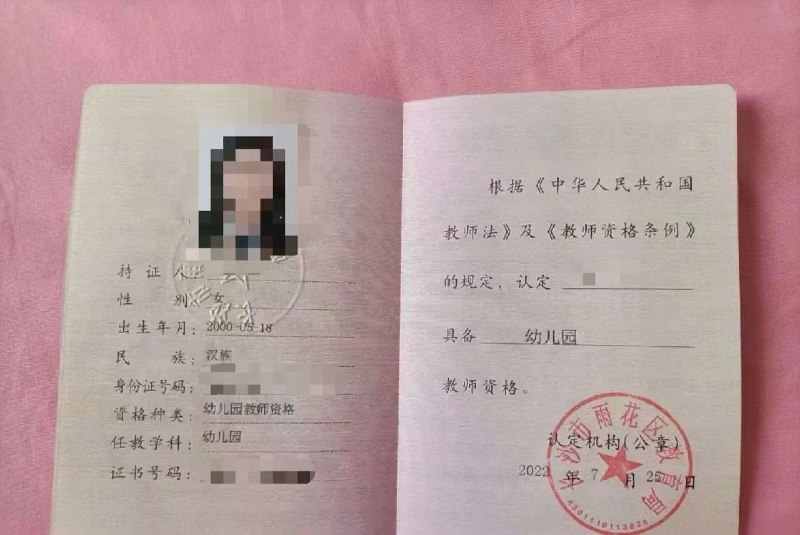 持证人:
性别:女
出生年月:2000-05-18
民族:汉族
身份证号码:
资格种类:幼儿园教师资格
任教学科:幼儿园
证书号码:
根据《中华人民共和国
教师法》及《教师资格条例》
的规定,认定
具备 幼儿园
教师资格。
长沙市雨花区教育局
认定机构(公章)
2022年7月25日
4301110113826